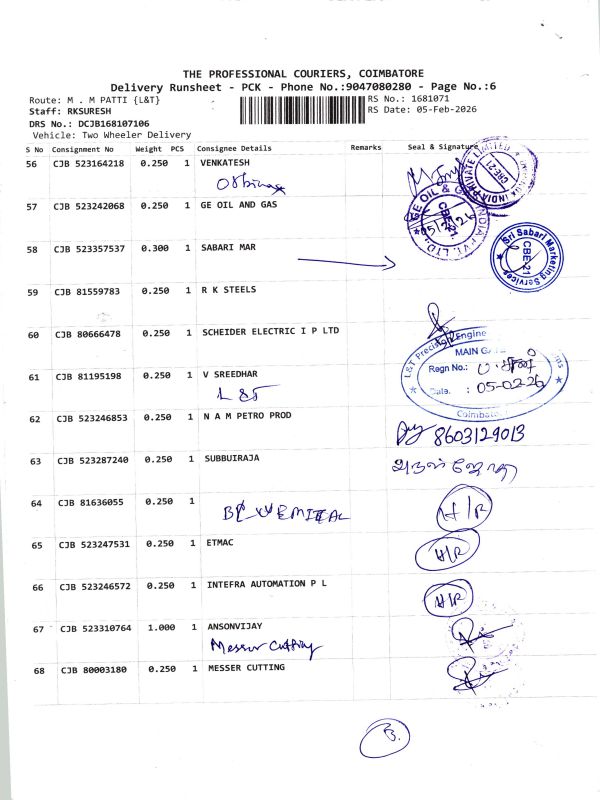 THE PROFESSIONAL COURIERS, COIMBATORE
Delivery Runsheet - PCK - Phone No.:9047080280 - Page No.:6
Route: M . M PATTI {L&T} RS No.: 1681071
Staff: RKSURESH RS Date: 05-Feb-2026
DRS No.: DCJB168107106
Vehicle: Two Wheeler Delivery
S No Consignment No Weight PCS Consignee Details Remarks Seal & Signature
56 CJB 523164218 0.250 1 VENKATESH
57 CJB 523242068 0.250 1 GE OIL AND GAS
GE OIL & G INDIA PVT. LTD. CBE-21
INDIA PRIVATE LIMITED CBE-21
58 CJB 523357537 0.300 1 SABARI MAR
Sri Sabari Marketing Services CBE-21
59 CJB 81559783 0.250 1 R K STEELS
60 CJB 80666478 0.250 1 SCHEIDER ELECTRIC I P LTD
L&T Precision Engine
MAIN GA
Regn No.:
Date. : 05-02-26
Coimbatore
61 CJB 81195198 0.250 1 V SREEDHAR
L&T
62 CJB 523246853 0.250 1 N A M PETRO PROD
8603129013
63 CJB 523287240 0.250 1 SUBBUIRAJA
அருள் ஜோதி
64 CJB 81636055 0.250 1
H/R
65 CJB 523247531 0.250 1 ETMAC
H/R
66 CJB 523246572 0.250 1 INTEFRA AUTOMATION P L
H/R
67 CJB 523310764 1.000 1 ANSONVIJAY
Messer Cutting
68 CJB 80003180 0.250 1 MESSER CUTTING